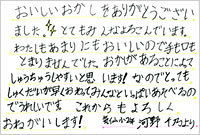 おいしいおかしをありがとうござい
ました。とてもみんなよろこんでいます。
わたしもあまりにもおいしいので手もロも
とまりませんでした。おかしがあることによって
しゅうちゅうしやすいと思います!なのでとっても
しゅくだいが早くおわってみんなとあそべるの
でうれしいです これからもよろしく
おねがいします!
河野